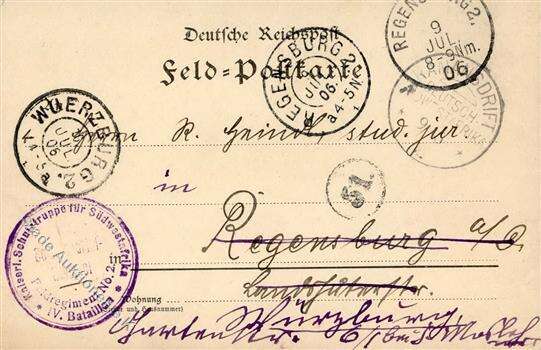 Deutsche Reichspost
Feld-Postkarte
REGENSBURG 2.
9
JUL.
8-9 Nm.
06
REGENSBURG 2.
JUL
06
WUERZBURG 2.
JUL
06
Herrn K. Heindl, stud. jur.
in
51
Regensburg a/D.
in
Landshuterstr.
Würzburg,
Wohnung
Gartenstr. 6/10
Kaiserl. Schutztruppe für Südwestafrika
Feldregiment No. 2.
IV. Bataillon